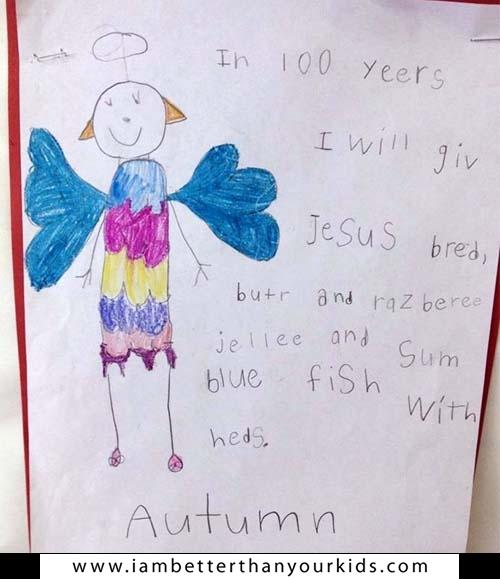 In 100 yeers
I will giv
Jesus bred,
butr and razberee
jellee and sum
blue fish with
heds.
Autumn
www.iambetterthanyourkids.com